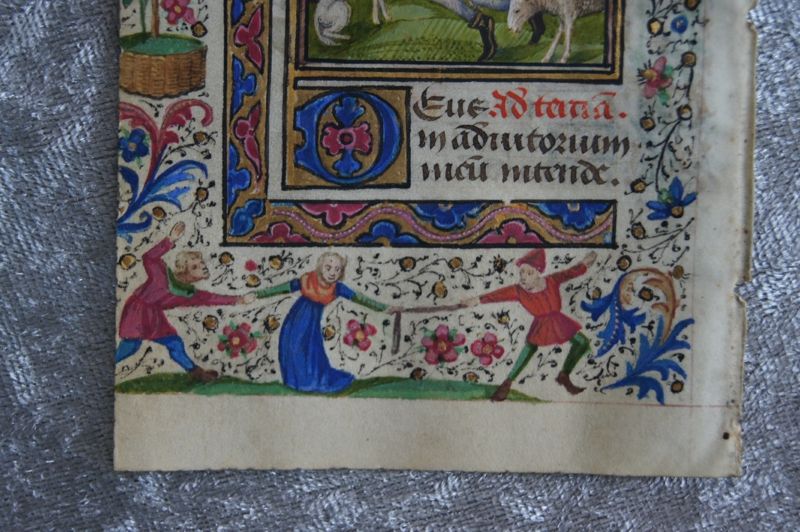 Deus Ad terciā.
in adiutorium
meū intende.